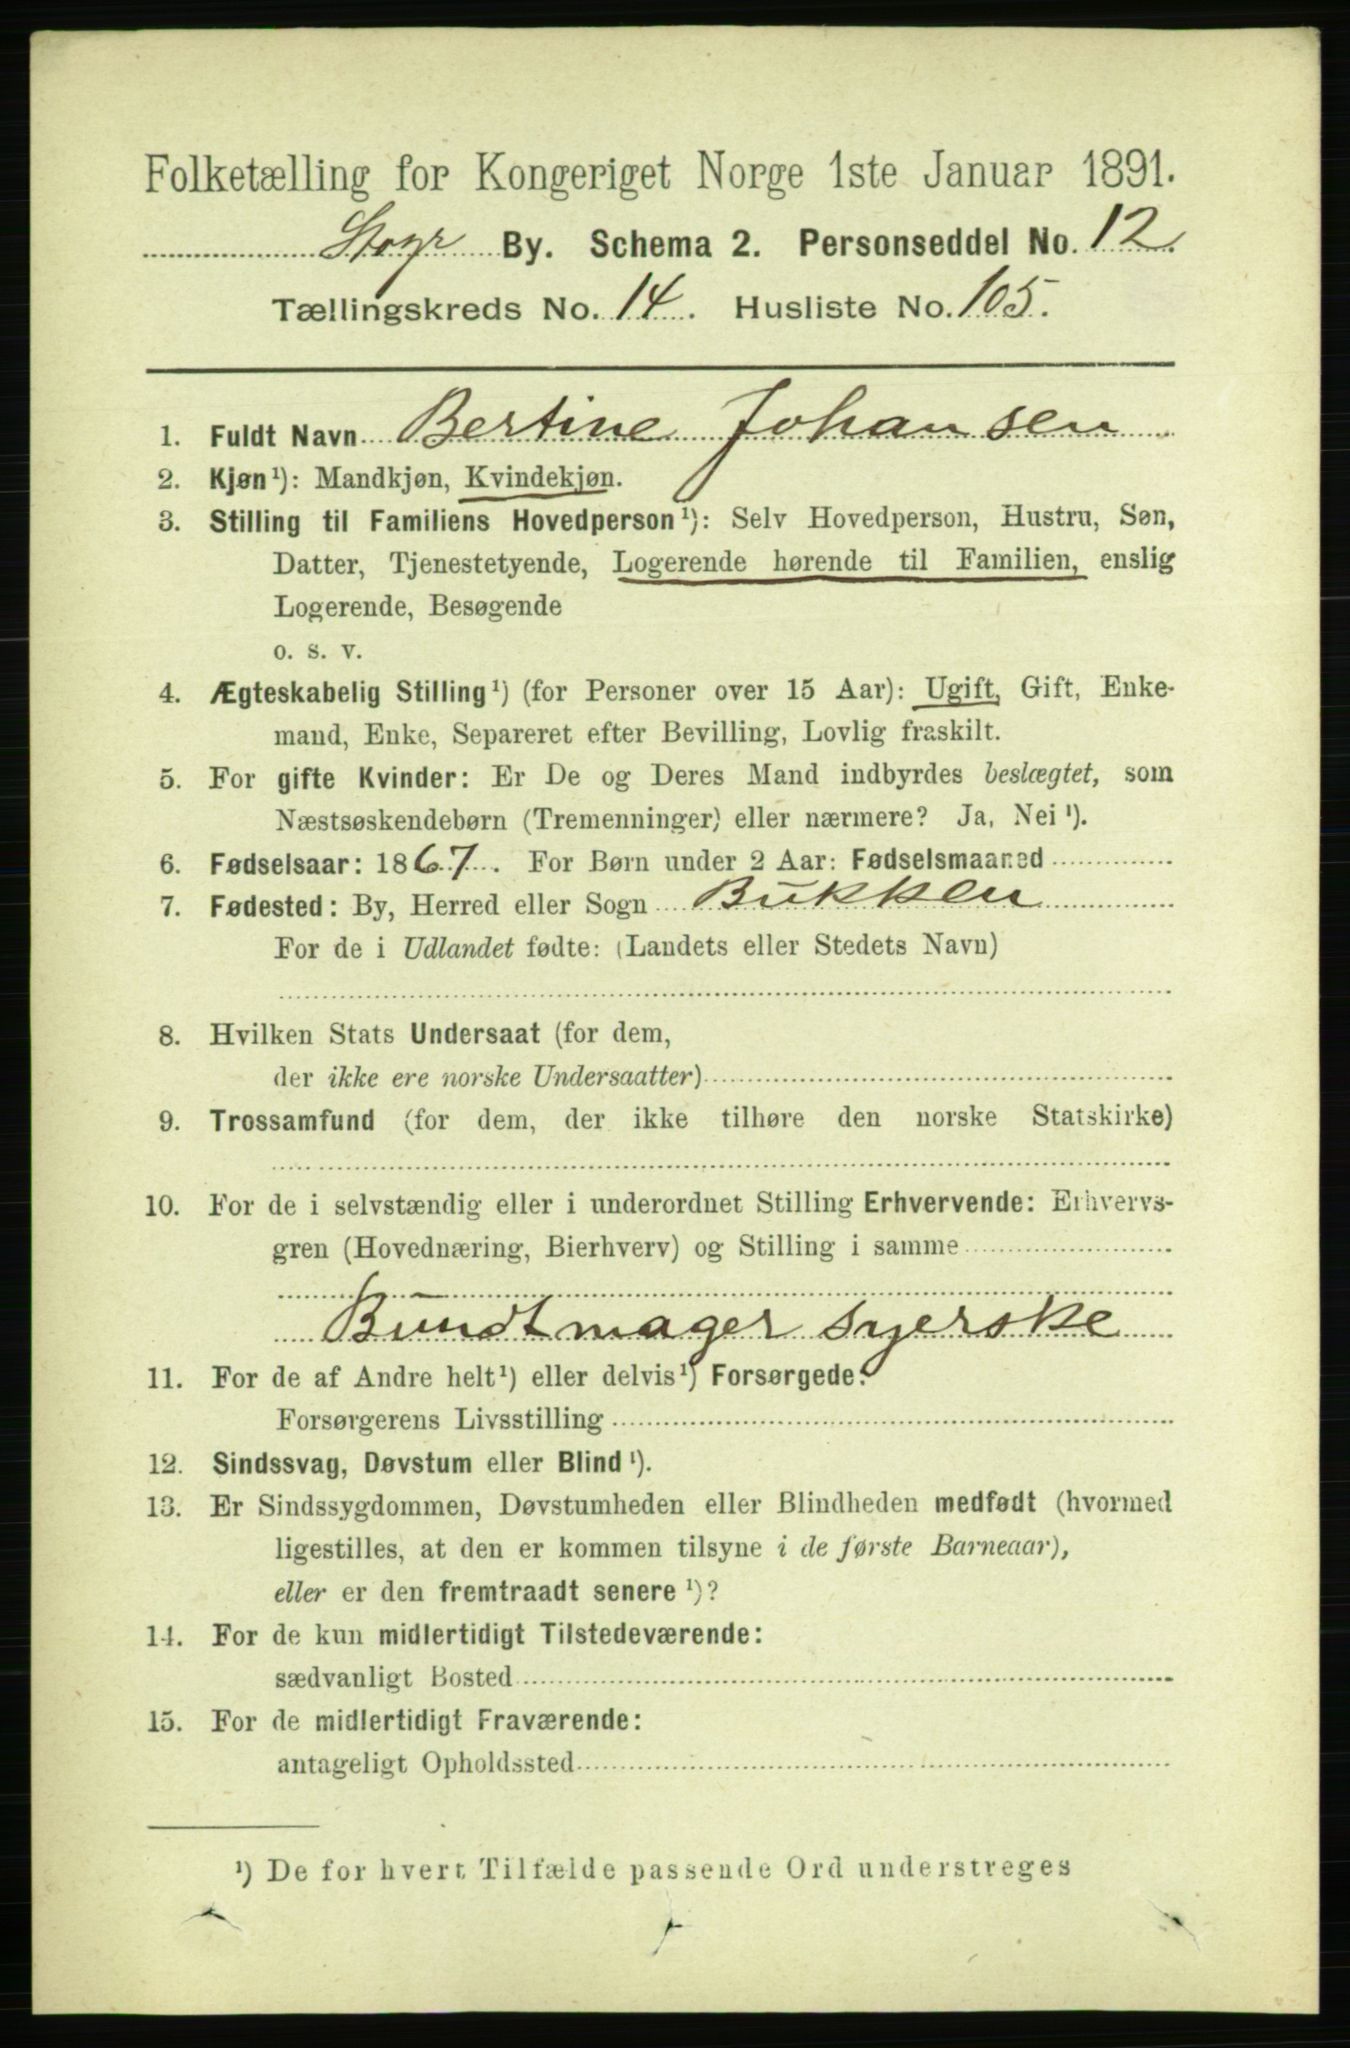 Folketælling for Kongeriget Norge 1ste Januar 1891.
By. Schema 2. Personseddel No. 12
Tællingskreds No. 14. Husliste No. 105.
1. Fuldt Navn Bertine Johansen
2. Kjøn¹): Mandkjøn, Kvindekjøn.
3. Stilling til Familiens Hovedperson¹): Selv Hovedperson, Hustru, Søn,
Datter, Tjenestetyende, Logerende hørende til Familien, enslig
Logerende, Besøgende
o. s. v.
4. Ægteskabelig Stilling¹) (for Personer over 15 Aar): Ugift, Gift, Enke-
mand, Enke, Separeret efter Bevilling, Lovlig fraskilt.
5. For gifte Kvinder: Er De og Deres Mand indbyrdes beslægtet, som
Næstsøskendebørn (Tremenninger) eller nærmere? Ja, Nei¹).
6. Fødselsaar: 1867. For Børn under 2 Aar: Fødselsmaaned
7. Fødested: By, Herred eller Sogn Bukken
For de i Udlandet fødte: (Landets eller Stedets Navn)
8. Hvilken Stats Undersaat (for dem,
der ikke ere norske Undersaatter)
9. Trossamfund (for dem, der ikke tilhøre den norske Statskirke)
10. For de i selvstændig eller i underordnet Stilling Erhvervende: Erhvervs-
gren (Hovednæring, Bierhverv) og Stilling i samme
Bundtmager syerske
11. For de af Andre helt¹) eller delvis¹) Forsørgede:
Forsørgerens Livsstilling
12. Sindssvag, Døvstum eller Blind¹).
13. Er Sindssygdommen, Døvstumheden eller Blindheden medfødt (hvormed
ligestilles, at den er kommen tilsyne i de første Barneaar),
eller er den fremtraadt senere¹)?
14. For de kun midlertidigt Tilstedeværende:
sædvanligt Bosted
15. For de midlertidigt Fraværende:
antageligt Opholdssted
¹) De for hvert Tilfælde passende Ord understreges